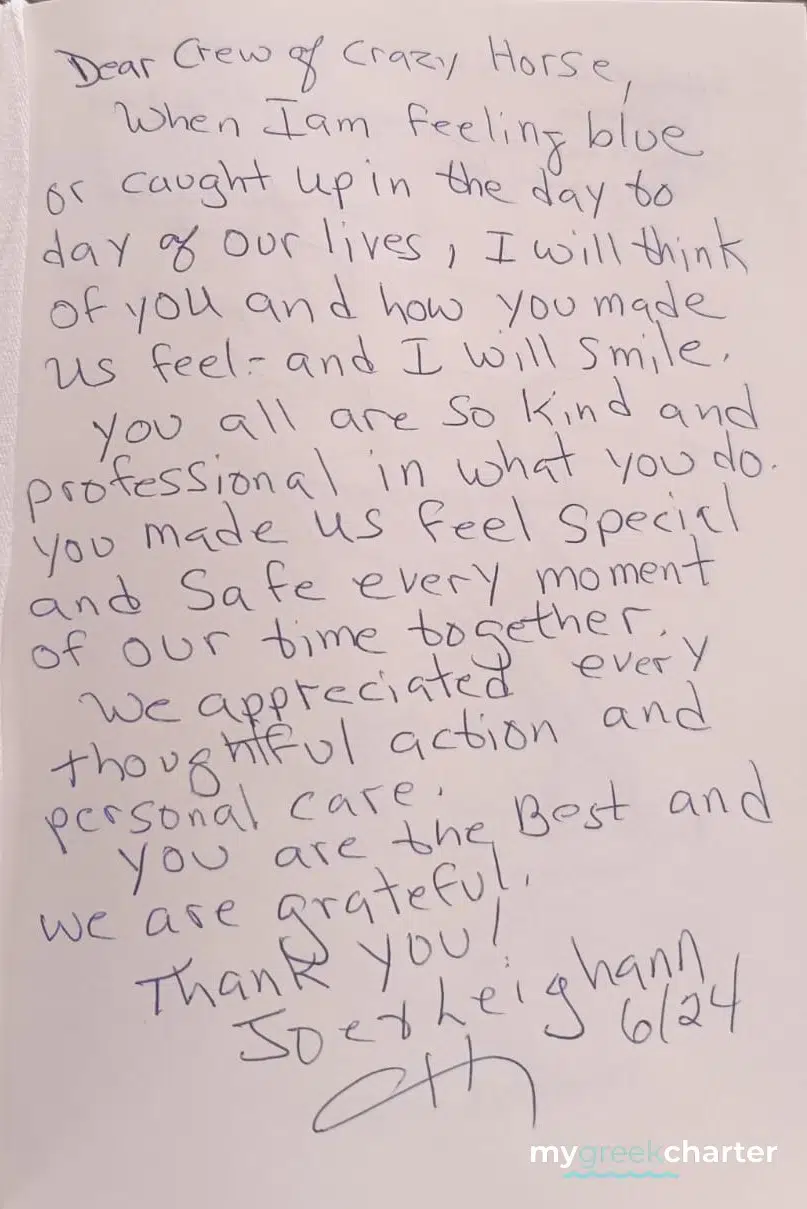 Dear Crew of Crazy Horse,
When I am feeling blue
or caught up in the day to
day of our lives, I will think
of you and how you made
us feel - and I will smile.
You all are so kind and
professional in what you do.
You made us feel special
and safe every moment
of our time together.
We appreciated every
thoughtful action and
personal care.
You are the Best and
we are grateful.
Thank you!
Joe & Leighann
6/24
mygreekcharter